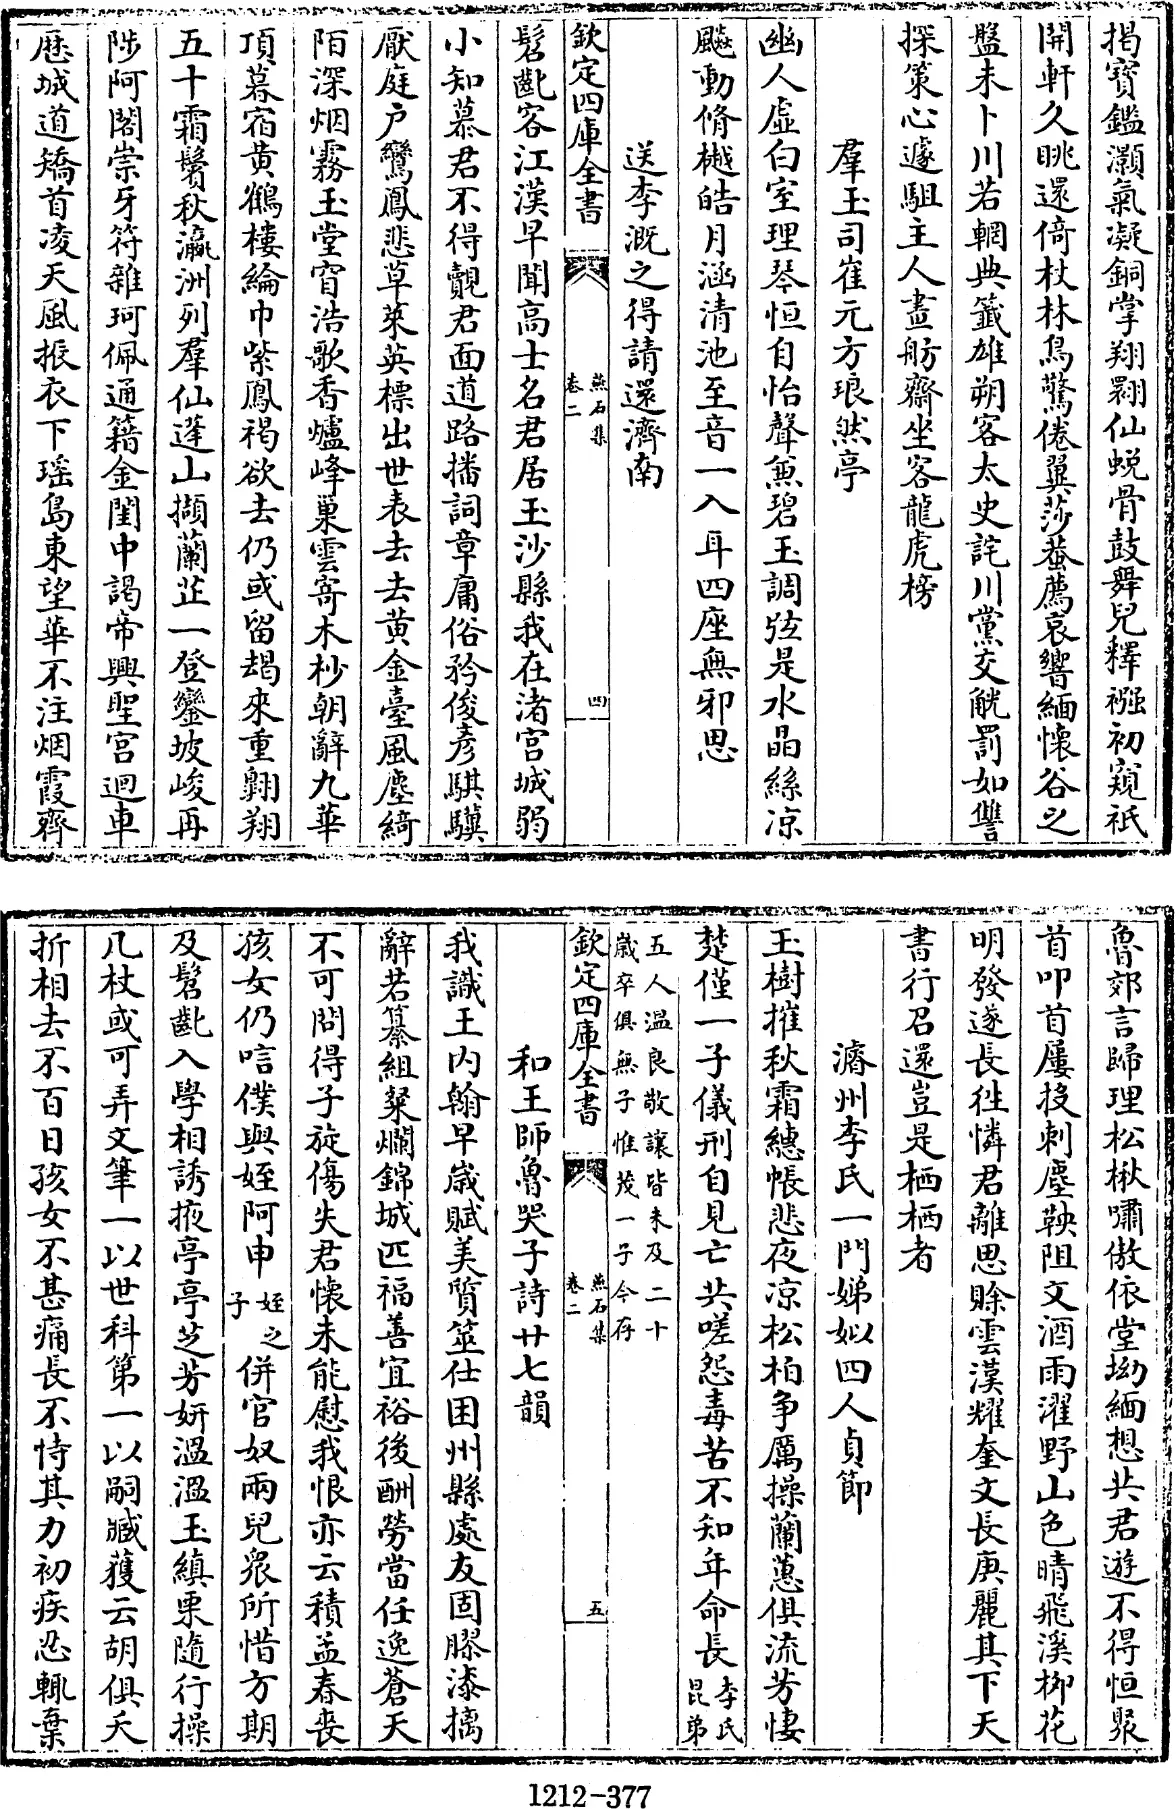 揭寶鑑灝氣凝銅掌翔翾仙蛻骨鼓舞兒釋襁初窺祇
開軒久眺還倚杖林鳥驚倦翼莎蛬薦哀響緬懷谷之
盤未卜川若輞典籤雄朔客太史詫川黨交觥罰如讐
探策心遽駔主人畫舫齋坐客龍虎榜
羣玉司崔元方琅然亭
幽人虛白室理琴恒自怡聲𠔥碧玉調弦是水晶絲凉
飈動脩樾皓月涵清池至音一入耳四座無邪思
送李溉之得請還濟南
欽定四庫全書
燕石集
卷二
四
髫齔客江漢早聞高士名君居玉沙縣我在渚宮城弱
小知慕君不得覿君面道路播詞章庸俗矜俊彥騏驥
厭庭户鸞鳳悲草萊英標出世表去去黃金臺風塵綺
陌深烟霧玉堂窅浩歌香爐峰巢雲寄木杪朝辭九華
頂暮宿黃鶴樓綸巾紫鳳褐欲去仍或留朅來重翺翔
五十霜鬢秋瀛洲列羣仙蓬山擷蘭芷一登鑾坡峻再
陟阿閣崇牙符雜珂佩通籍金閨中謁帝興聖宮迴車
歷城道矯首凌天風振衣下瑶島東望華不注烟霞齊
魯郊言歸理松楸嘯傲依堂坳緬想共君遊不得恒聚
首叩首屢投刺塵鞅阻文酒雨濯野山色晴飛溪柳花
明發遂長徃憐君離思賒雲漢耀奎文長庚麗其下天
書行召還豈是栖栖者
濬州李氏一門娣姒四人貞節
玉樹摧秋霜繐帳悲夜凉松柏争厲操蘭蕙俱流芳悽
楚僅一子儀刑自見亡共嗟怨毒苦不知年命長李氏
昆弟
五人溫良敬讓皆未及二十
歲卒俱無子惟茂一子今存
欽定四庫全書
燕石集
卷二
五
和王師魯哭子詩廿七韻
我識王内翰早歲賦美質筮仕困州縣處友固膠漆摛
辭若纂組粲爛錦城匹福善宜裕後酬勞當任逸蒼天
不可問得子旋傷失君懷未能慰我恨亦云積孟春喪
孩女仍唁僕與姪阿申姪之
子併官奴兩兒衆所惜方期
及髫齔入學相誘掖亭亭芝芳妍溫溫玉縝栗隨行操
几杖或可弄文筆一以世科第一以嗣臧獲云胡俱夭
折相去不百日孩女不甚痛長不恃其力初疾忍輒棄
1212-377